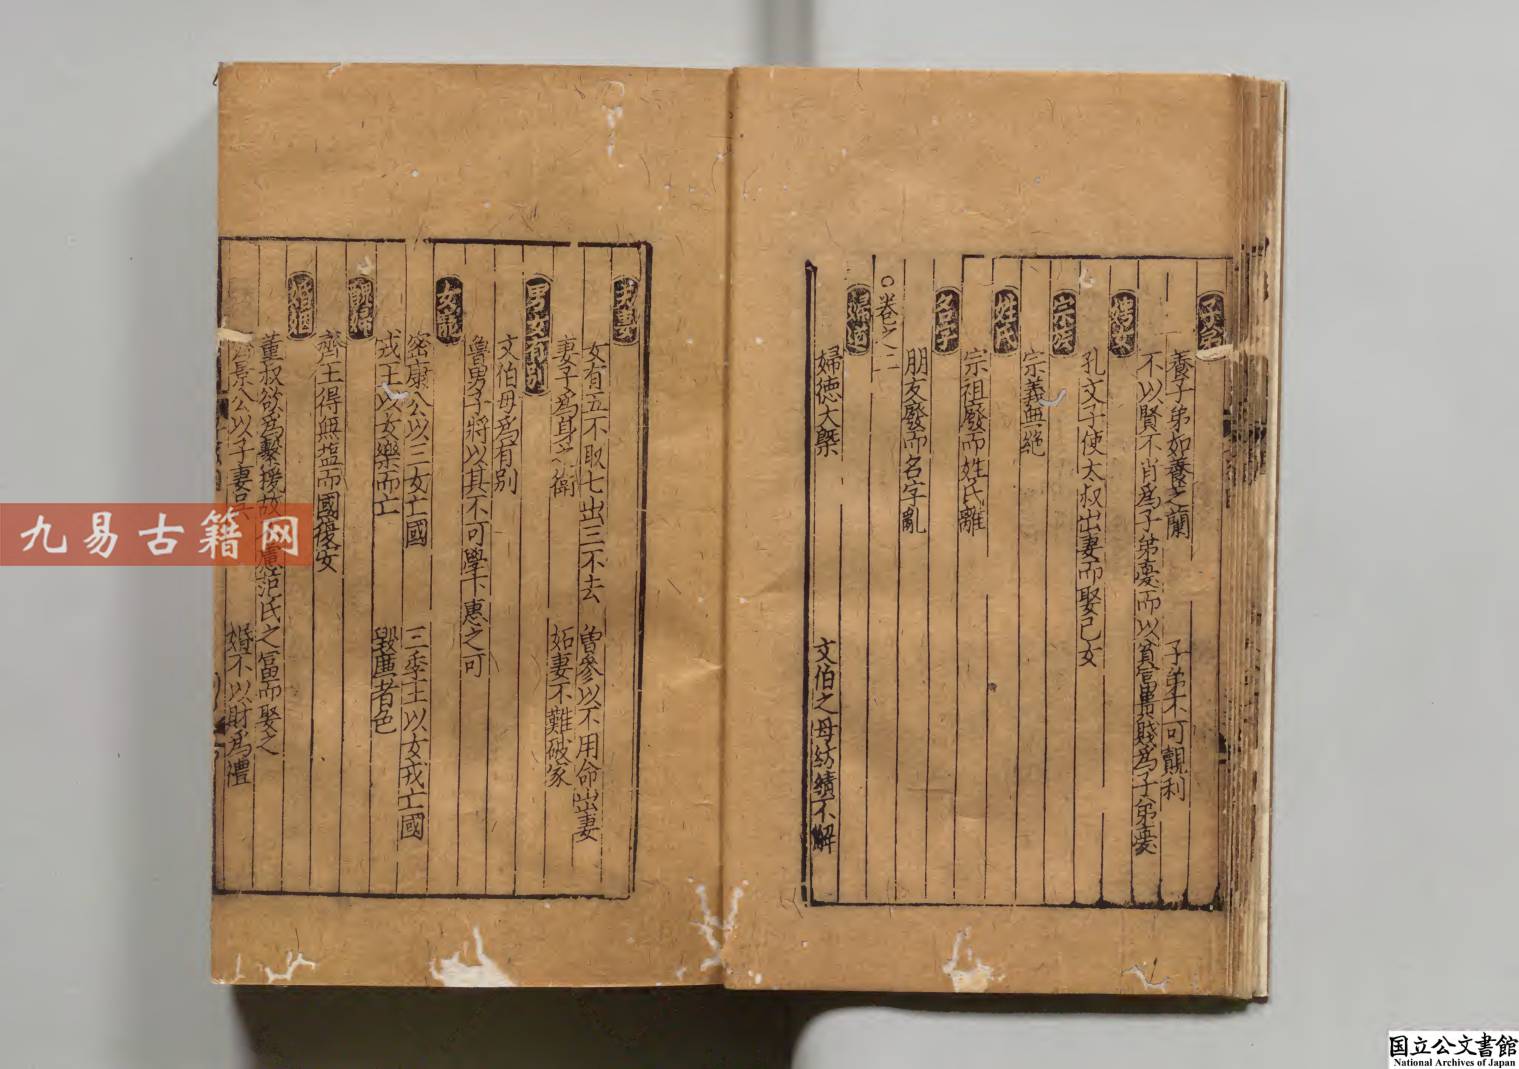 子弟
養子弟如養芝蘭　子弟不可覩利
不以賢不肖爲子弟憂而以貧富貴賤爲子弟憂
孔文子使太叔出妻而娶己女
宗族
宗義無絕
姓氏
宗祖廢而姓氏離
名字
朋友廢而名字亂
○卷之二
婦道
婦德大槩　文伯之母紡績不解
夫妻
女有五不取七出三不去　曽參以不用命出妻
妻子爲身之衛　妬妻不難破家
男女有別
文伯母爲有别
魯男子將以其不可學下惠之可
女寵
密康公以三女亡國　三季王以女戎亡國
戎王以女樂而亡
醜婦
齊王得無塩而國復安
婚姻
董叔欲爲繫援故
范氏之富而娶之
景公以子妻
婚不以財爲禮
九易古籍网
国立公文書館
National Archives of Japan